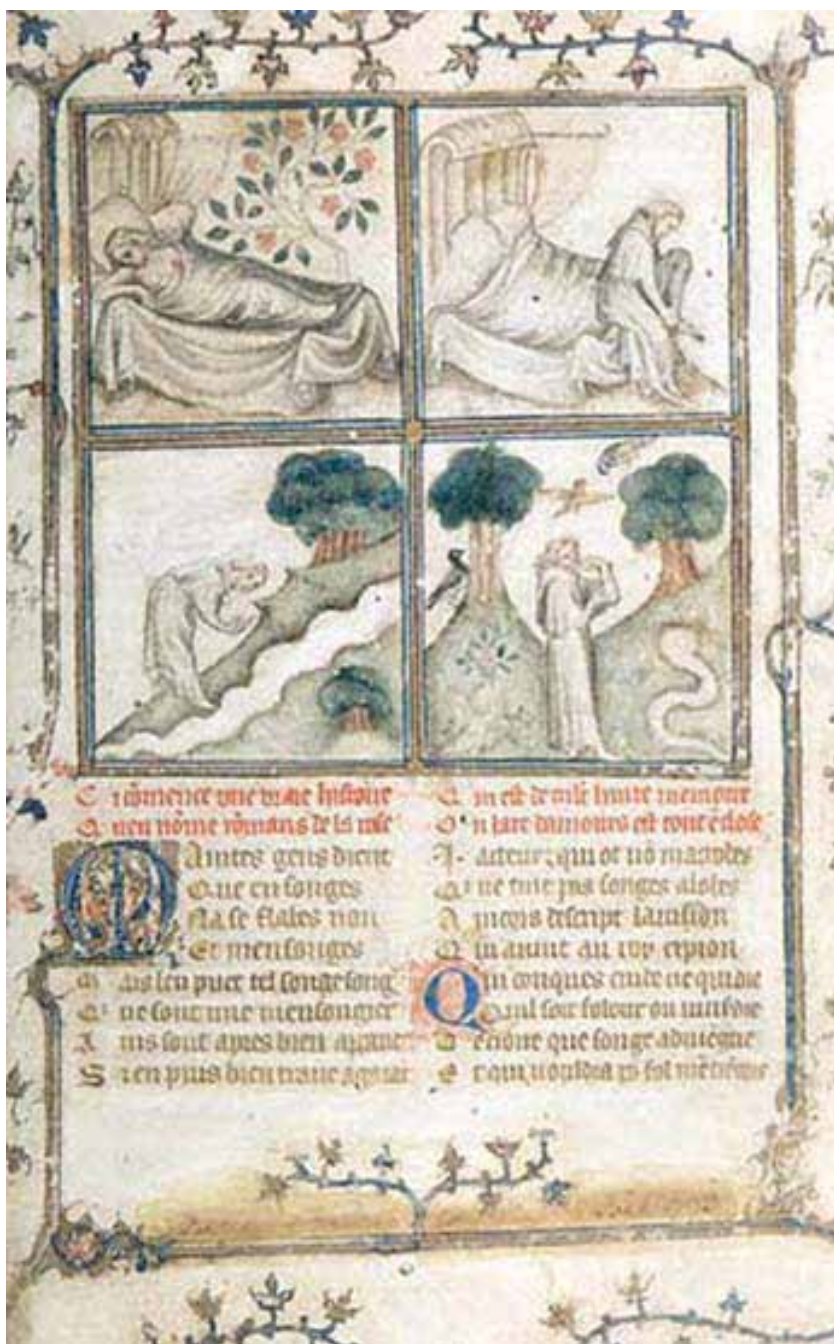 C i cōmence une vraie histoire
Q ueu nōme rōmans de la rose
Maintes gens dient
Que en songes
Na se fables non
Et mensonges
M ais len puet tel songe song
Q ne sont mie mensongier
A ins sont apres bien
S i en puis bien traire a garāt
Q ui est de mlt haute memoire
O u lart damours est toute eclose
acteur qui ot nō
ne tint pas songes aloles
A incois descript lavision
Q ui avint au roy cipion
Quiconques cuide ne qui die
Q uil soit folour ou musdie
D e croire que songe adviegne
E t qui vouldra pr fol mētiegne